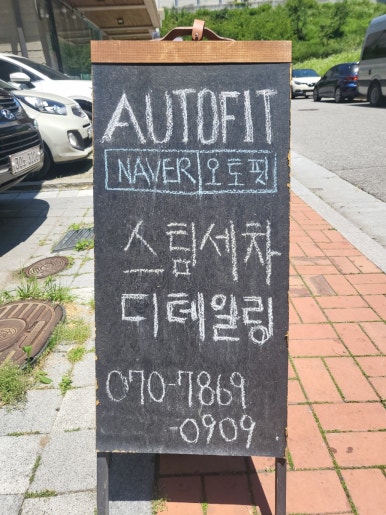 AUTOFIT
NAVER 오토핏
스팀세차
디테일링
070-7869
-0909